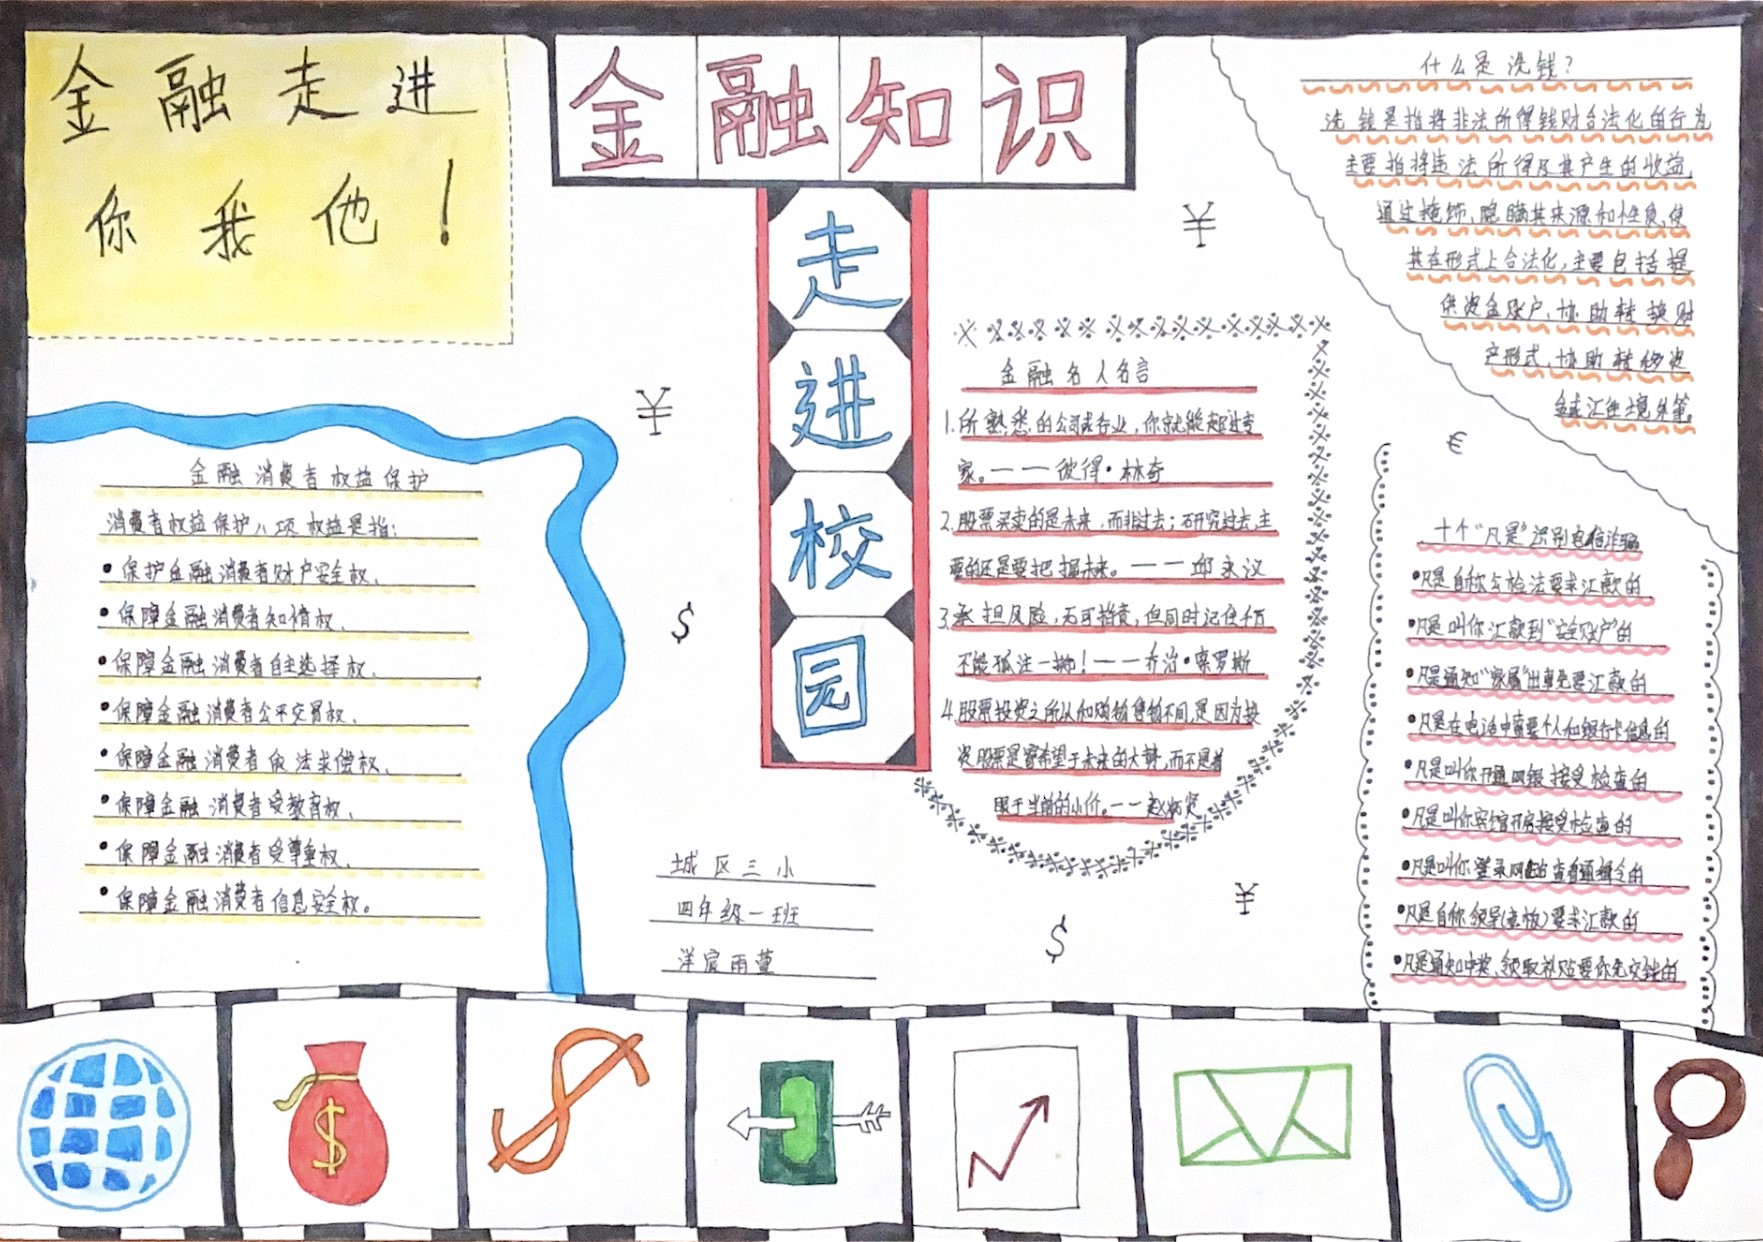 金融走进
你我他！
金融知识
走进校园
什么是洗钱？
洗钱是指将非法所得钱财合法化的行为
主要指将违法所得及其产生的收益,
通过掩饰、隐瞒其来源和性质,使
其在形式上合法化,主要包括提
供资金账户、协助转换财
产形式、协助转移资
金或汇往境外等
金融消费者权益保护
消费者权益保护八项权益是指:
• 保护金融消费者财产安全权、
• 保障金融消费者知情权、
• 保障金融消费者自主选择权、
• 保障金融消费者公平交易权、
• 保障金融消费者依法求偿权、
• 保障金融消费者受教育权、
• 保障金融消费者受尊重权、
• 保障金融消费者信息安全权。
金融名人名言
1.所熟悉的公司或行业,你就能超过专
家。——彼得·林奇
2.股票买卖的是未来,而非过去;研究过去,主
要的还是要把握未来。——邱永汉
3.承担风险,无可指责,但同时记住千万
不能孤注一掷!——乔治·索罗斯
4.股票投资之所以和购物货物不同,是因为投
资股票是寄希望于未来的大 而不是着
眼于当前的小价。——
十个“凡是”识别电信诈骗
•凡是自称公检法要求汇款的
•凡是叫你汇款到“安全账户”的
•凡是通知“家属”出事先要汇款的
•凡是在电话中索要个人和银行卡信息的
•凡是叫你开通网银接受检查的
•凡是叫你宾馆开房接受检查的
•凡是叫你登录网站查看通缉令的
•凡是自称领导(老板)要求汇款的
•凡是通知中奖、领取补贴要你先交钱的
城区三小
四年级一班
洋宸雨萱
¥
¥
¥
€
$
$
$
$